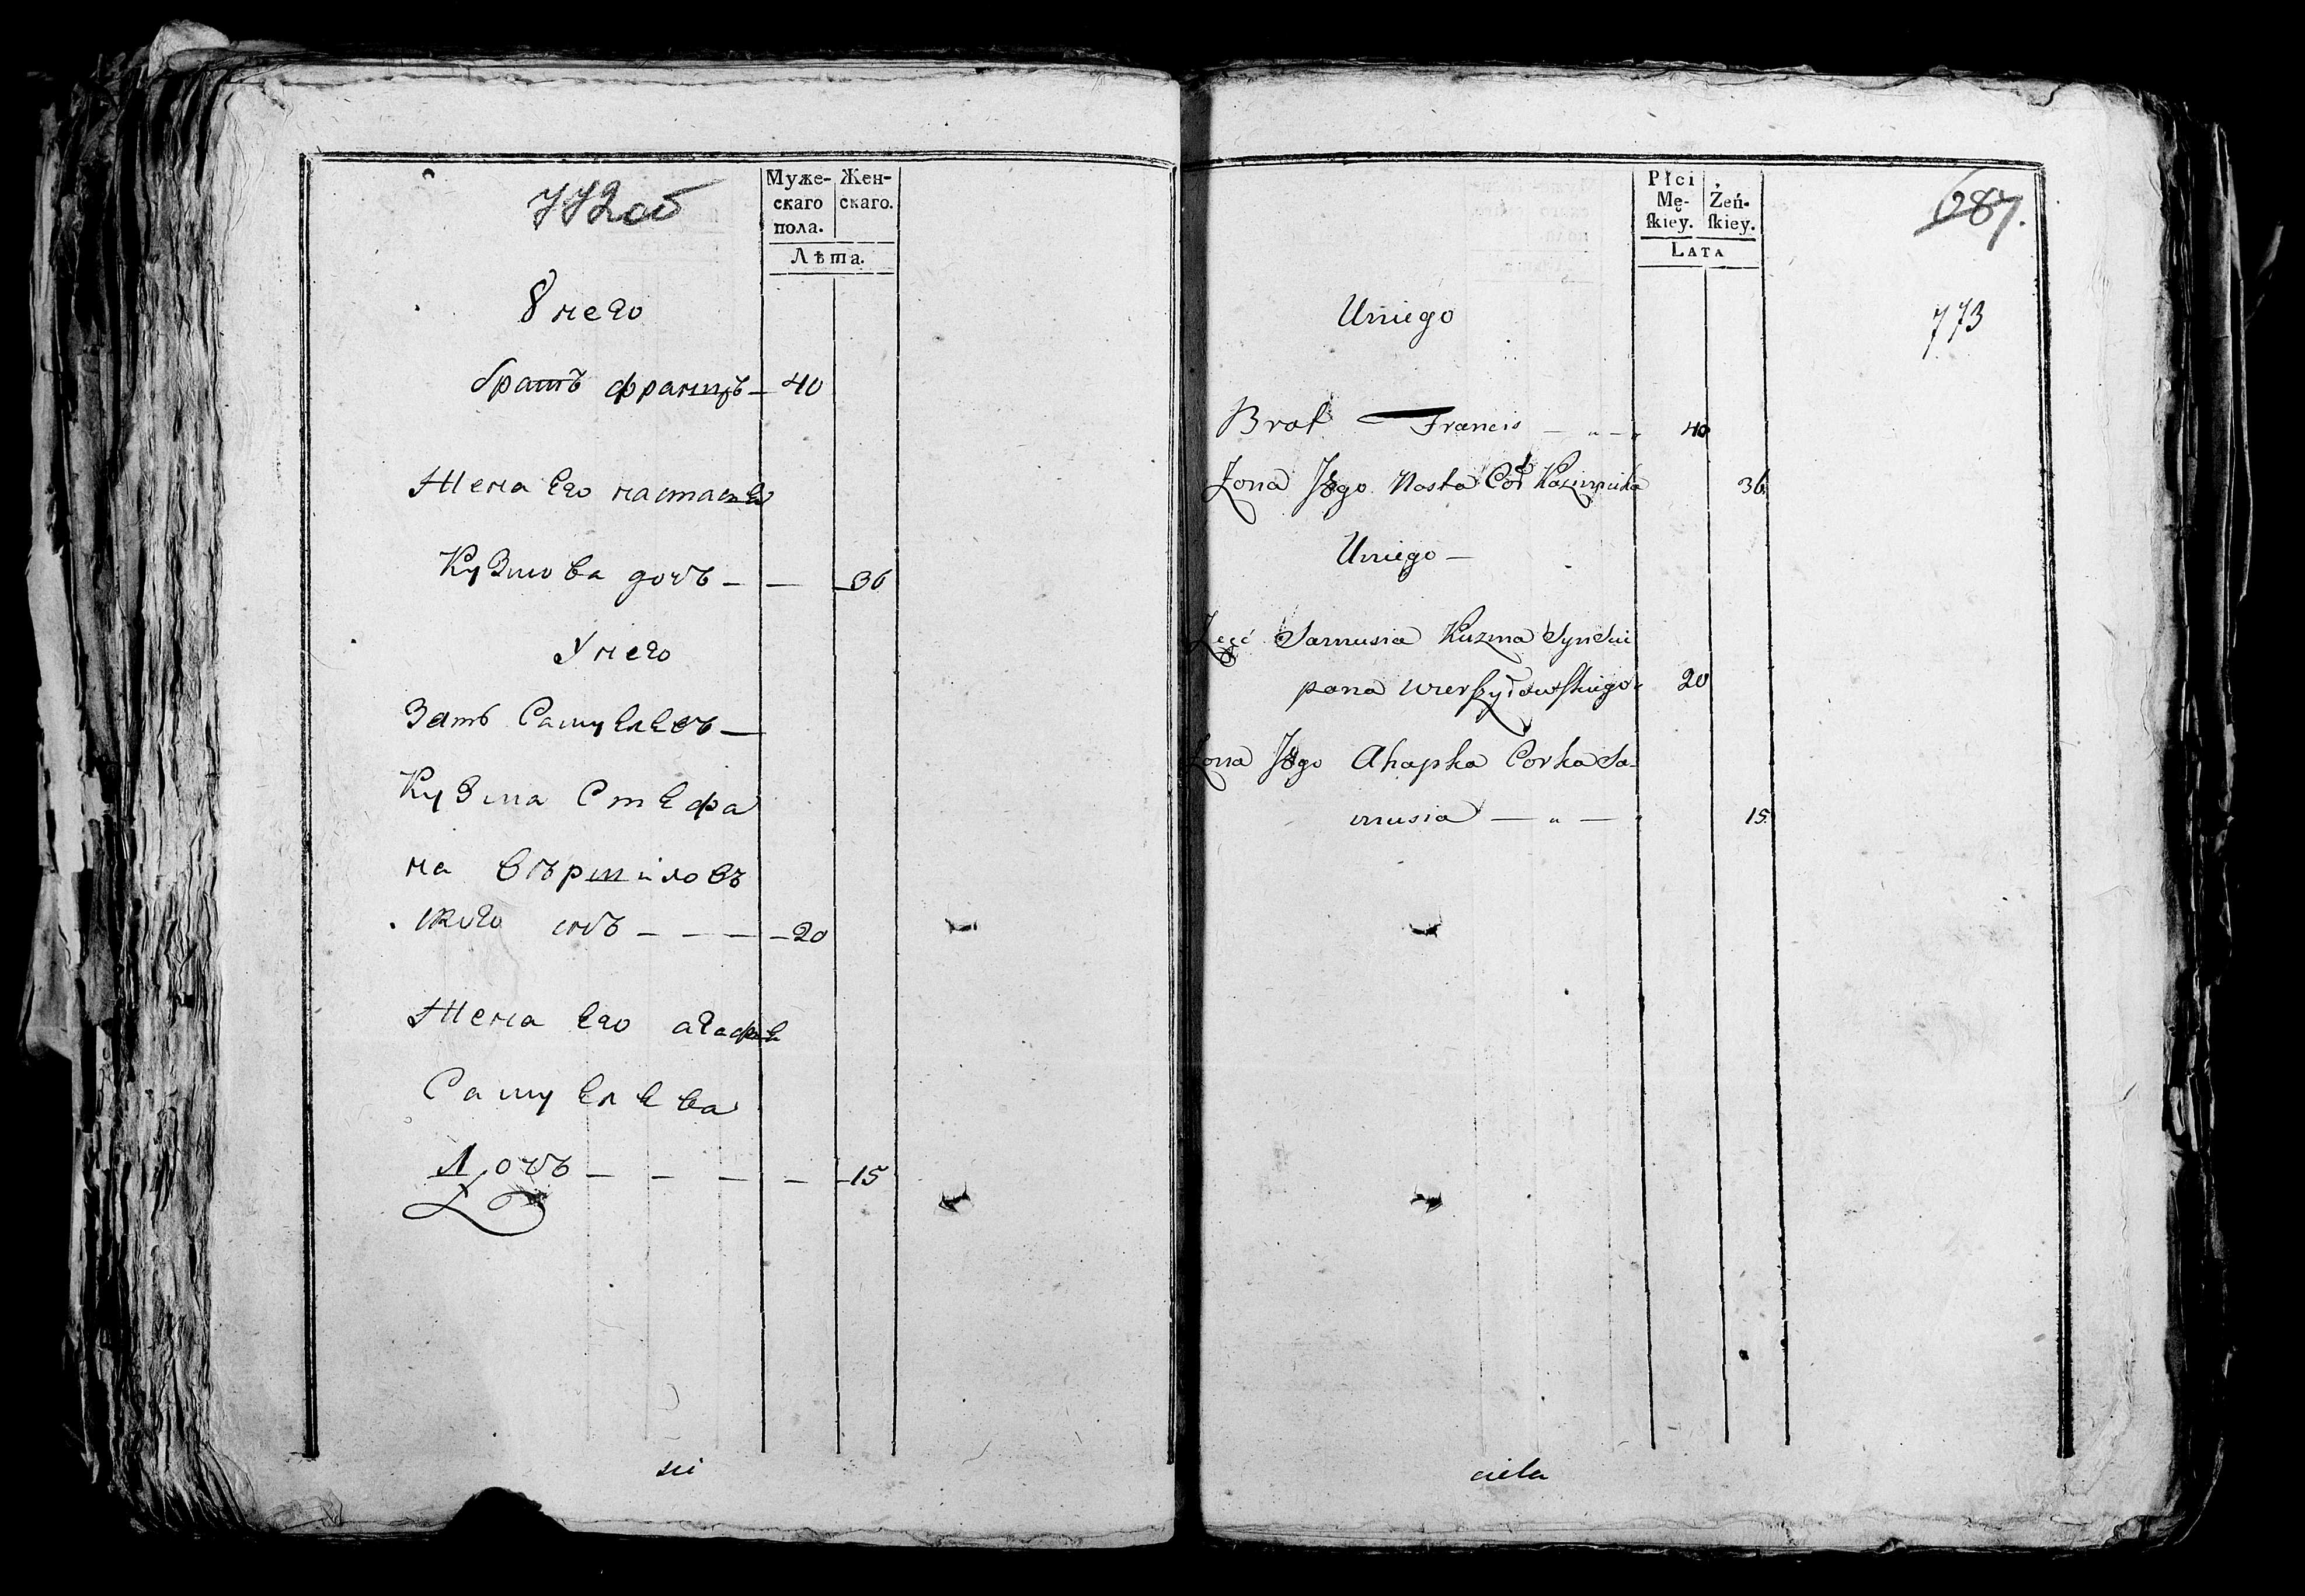 772об
Муже-
скаго
пола.
Жен-
скаго.
Лѣта.
Ꙋ него
братъ францъ — 40
Жена его настасья
Кузмова дочь — — — 36
У него
Зять Самуелевъ —
Кузма Стефа
на вѣршиловъ
скаго сынъ — — — — 20
Жена его агафья
Самуелева
Дочь — — — — — 15
sci
Płci
Mę-
ſkiey.
Żeń-
ſkiey.
Lata
687.
773
Uniego
Brat Francis — „ — „ 40
Żona Jego Nasta Cor Kazimira 36
Uniego —
Zęć Samusia Kuzma Syn Sci
pana Wierszyłowſkiego 20
Żona Jego Ahapka Corka Sa-
musia — „ — „ 15
ciela